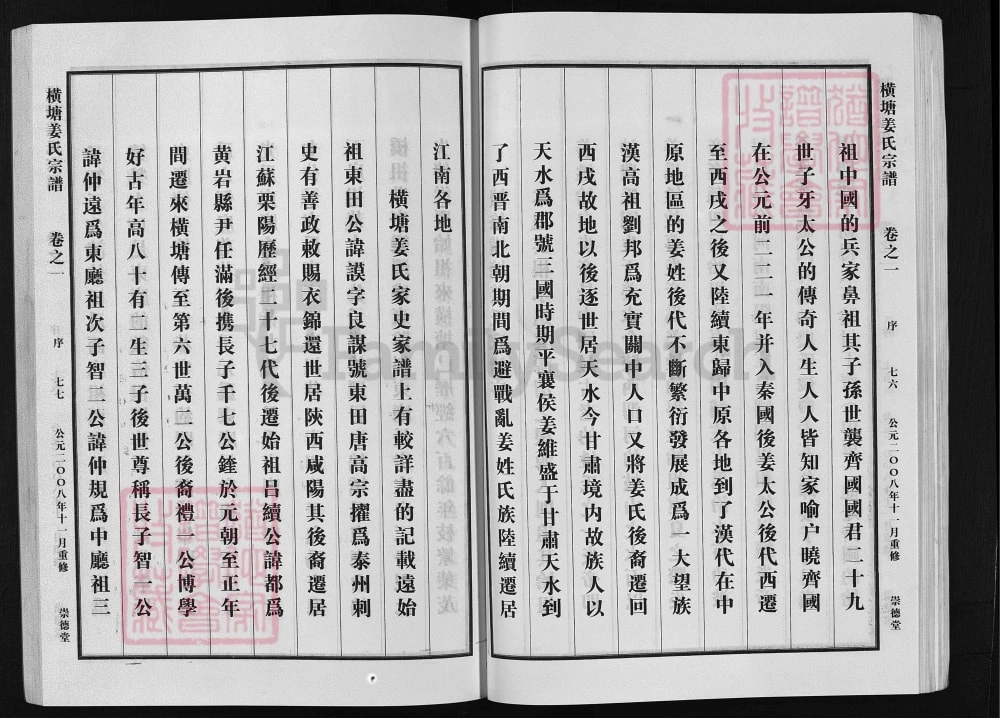 橫塘姜氏宗譜 卷之一 序 七六 公元二〇〇八年十一月重修 崇德堂
祖中國的兵家鼻祖其子孫世襲齊國國君二十九
世子牙太公的傳奇人生人人皆知家喻户曉齊國
在公元前二二一年并入秦國後姜太公後代西遷
至西戌之後又陸續東歸中原各地到了漢代在中
原地區的姜姓後代不斷繁衍發展成爲一大望族
漢高祖劉邦爲充實關中人口又將姜氏後裔遷回
西戌故地以後逐世居天水今甘肅境内故族人以
天水爲郡號三國時期平襄侯姜維盛于甘肅天水到
了西晋南北朝期間爲避戰亂姜姓氏族陸續遷居
江南各地
橫塘姜氏家史家譜上有較詳盡的記載遠始
祖東田公諱謨字良謀號東田唐高宗擢爲泰州刺
史有善政敕賜衣錦還世居陝西咸陽其後裔遷居
江蘇栗陽歷經二十七代後遷始祖吕續公諱都爲
黄岩縣尹任滿後携長子千七公鍷於元朝至正年
間遷來橫塘傳至第六世萬二公後裔禮一公博學
好古年高八十有二生三子後世尊稱長子智一公
諱仲遠爲東廳祖次子智二公諱仲規爲中廳祖三
橫塘姜氏宗譜 卷之一 序 七七 公元二〇〇八年十一月重修 崇德堂
FamilySearch